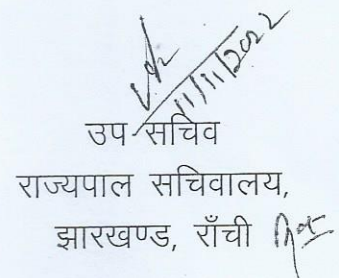 11/11/2022
उप सचिव
राज्यपाल सचिवालय,
झारखण्ड, राँची